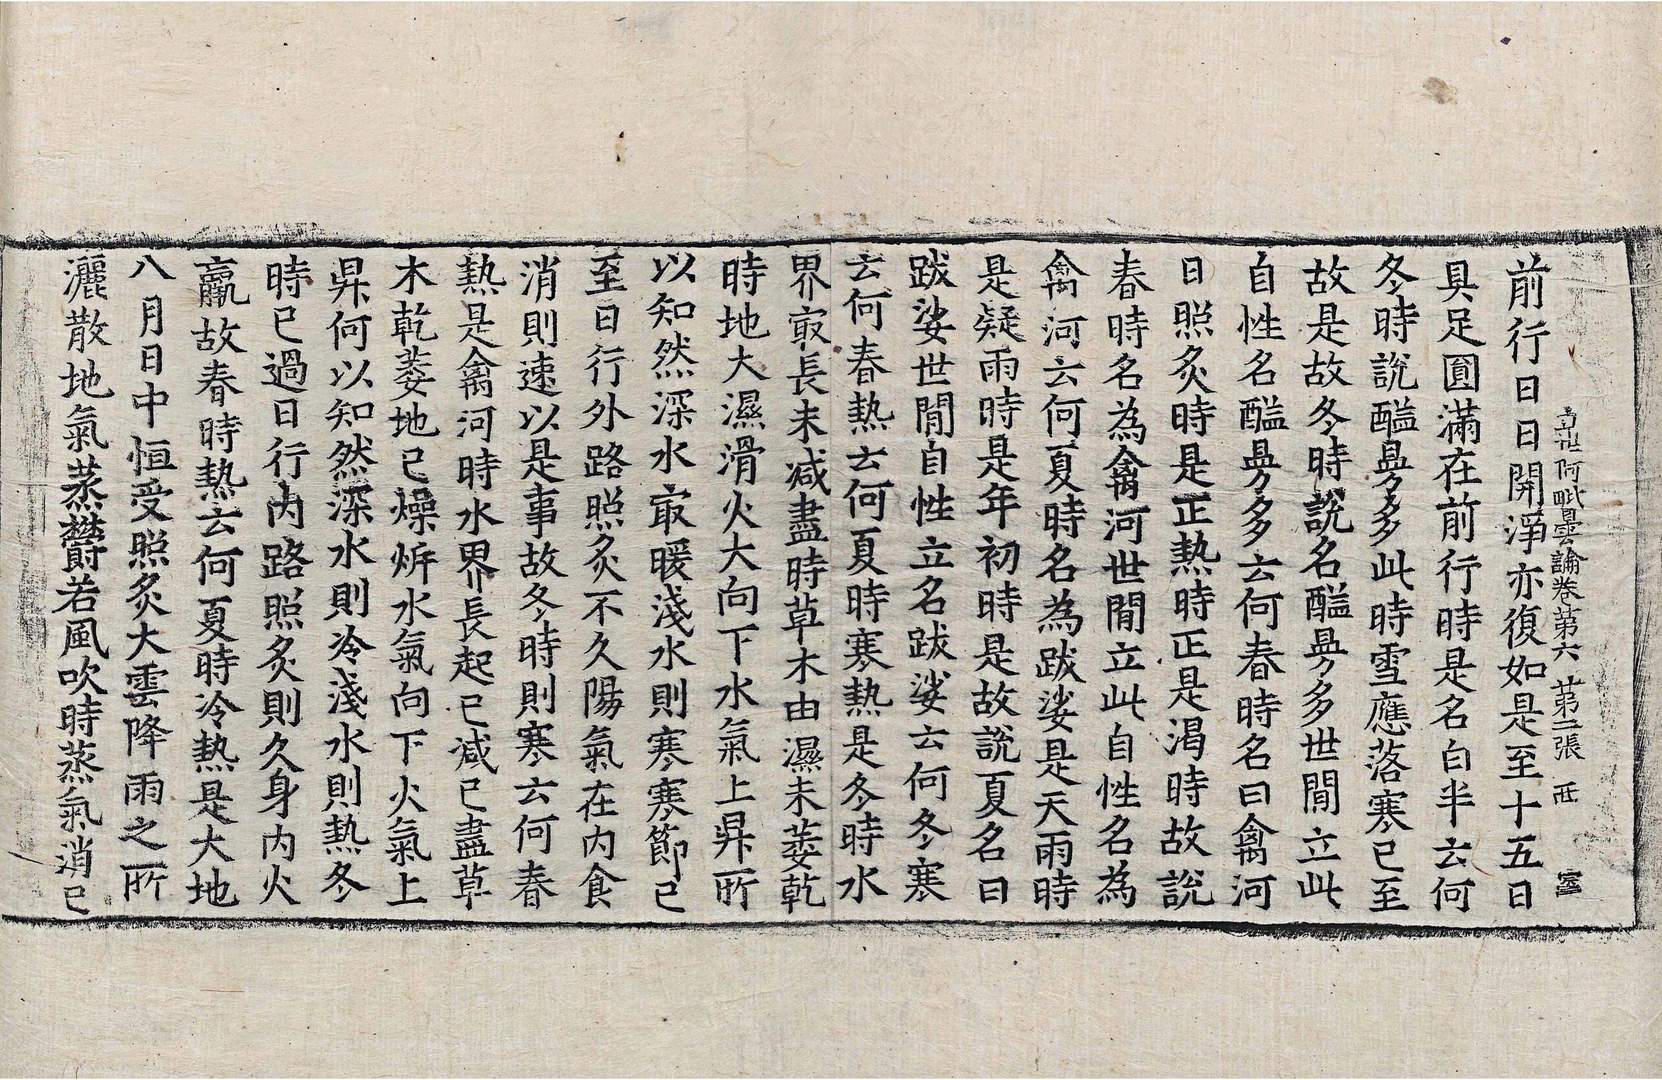 立世阿毗曇論卷第六 第二張
前行日日開淨亦復如是至十五日
具足圓滿在前行時是名白半云何
冬時說醯㬅多此時雪應落寒已至
故是故冬時說名醯㬅多世間立此
自性名醯㬅多云何春時名曰禽河
日照炙時是正熱時正是渴時故說
春時名為禽河世間立此自性名為
禽河云何夏時名為跋娑是天雨時
是疑雨時是年初時是故說夏名曰
跋娑世間自性立名跋娑云何冬寒
云何春熱云何夏時寒熱是冬時水
界冣長未減盡時草木由濕未萎乾
時地大濕滑火大向下水氣上昇所
以知然深水冣暖淺水則寒寒節已
至日行外路照炙不久陽氣在內食
消則速以是事故冬時則寒云何春
熱是禽河時水界長起已減已盡草
木乾萎地已燥㭊水氣向下火氣上
昇何以知然深水則冷淺水則熱冬
時已過日行內路照炙則久身內火
羸故春時熱云何夏時冷熱是大地
八月日中恒受照炙大雲降雨之所
灑散地氣蒸欝若風吹時蒸氣消已